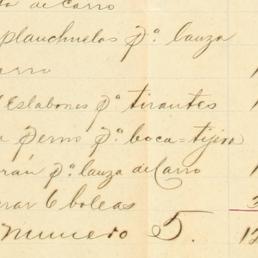 de carro
planchuelas pª lanza
erro
Eslabones pª tirantes
a perno pª boca=tijera
rán pª lanza de Carro
rar 6 boleas 3
numero 5. 12